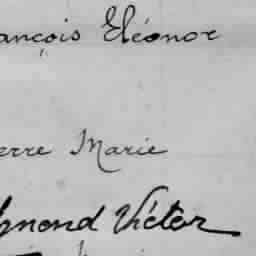 ançois Eléonor
erre Marie
mond Victor